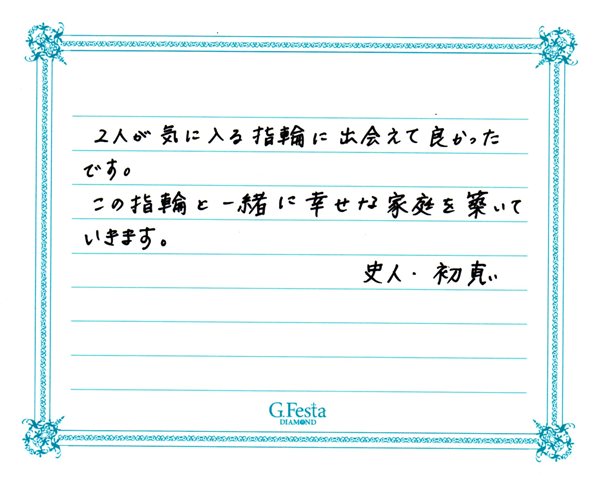 2人が気に入る指輪に出会えて良かった
です。
この指輪と一緒に幸せな家庭を築いて
いきます。
史人・初真
G.Festa
DIAMOND